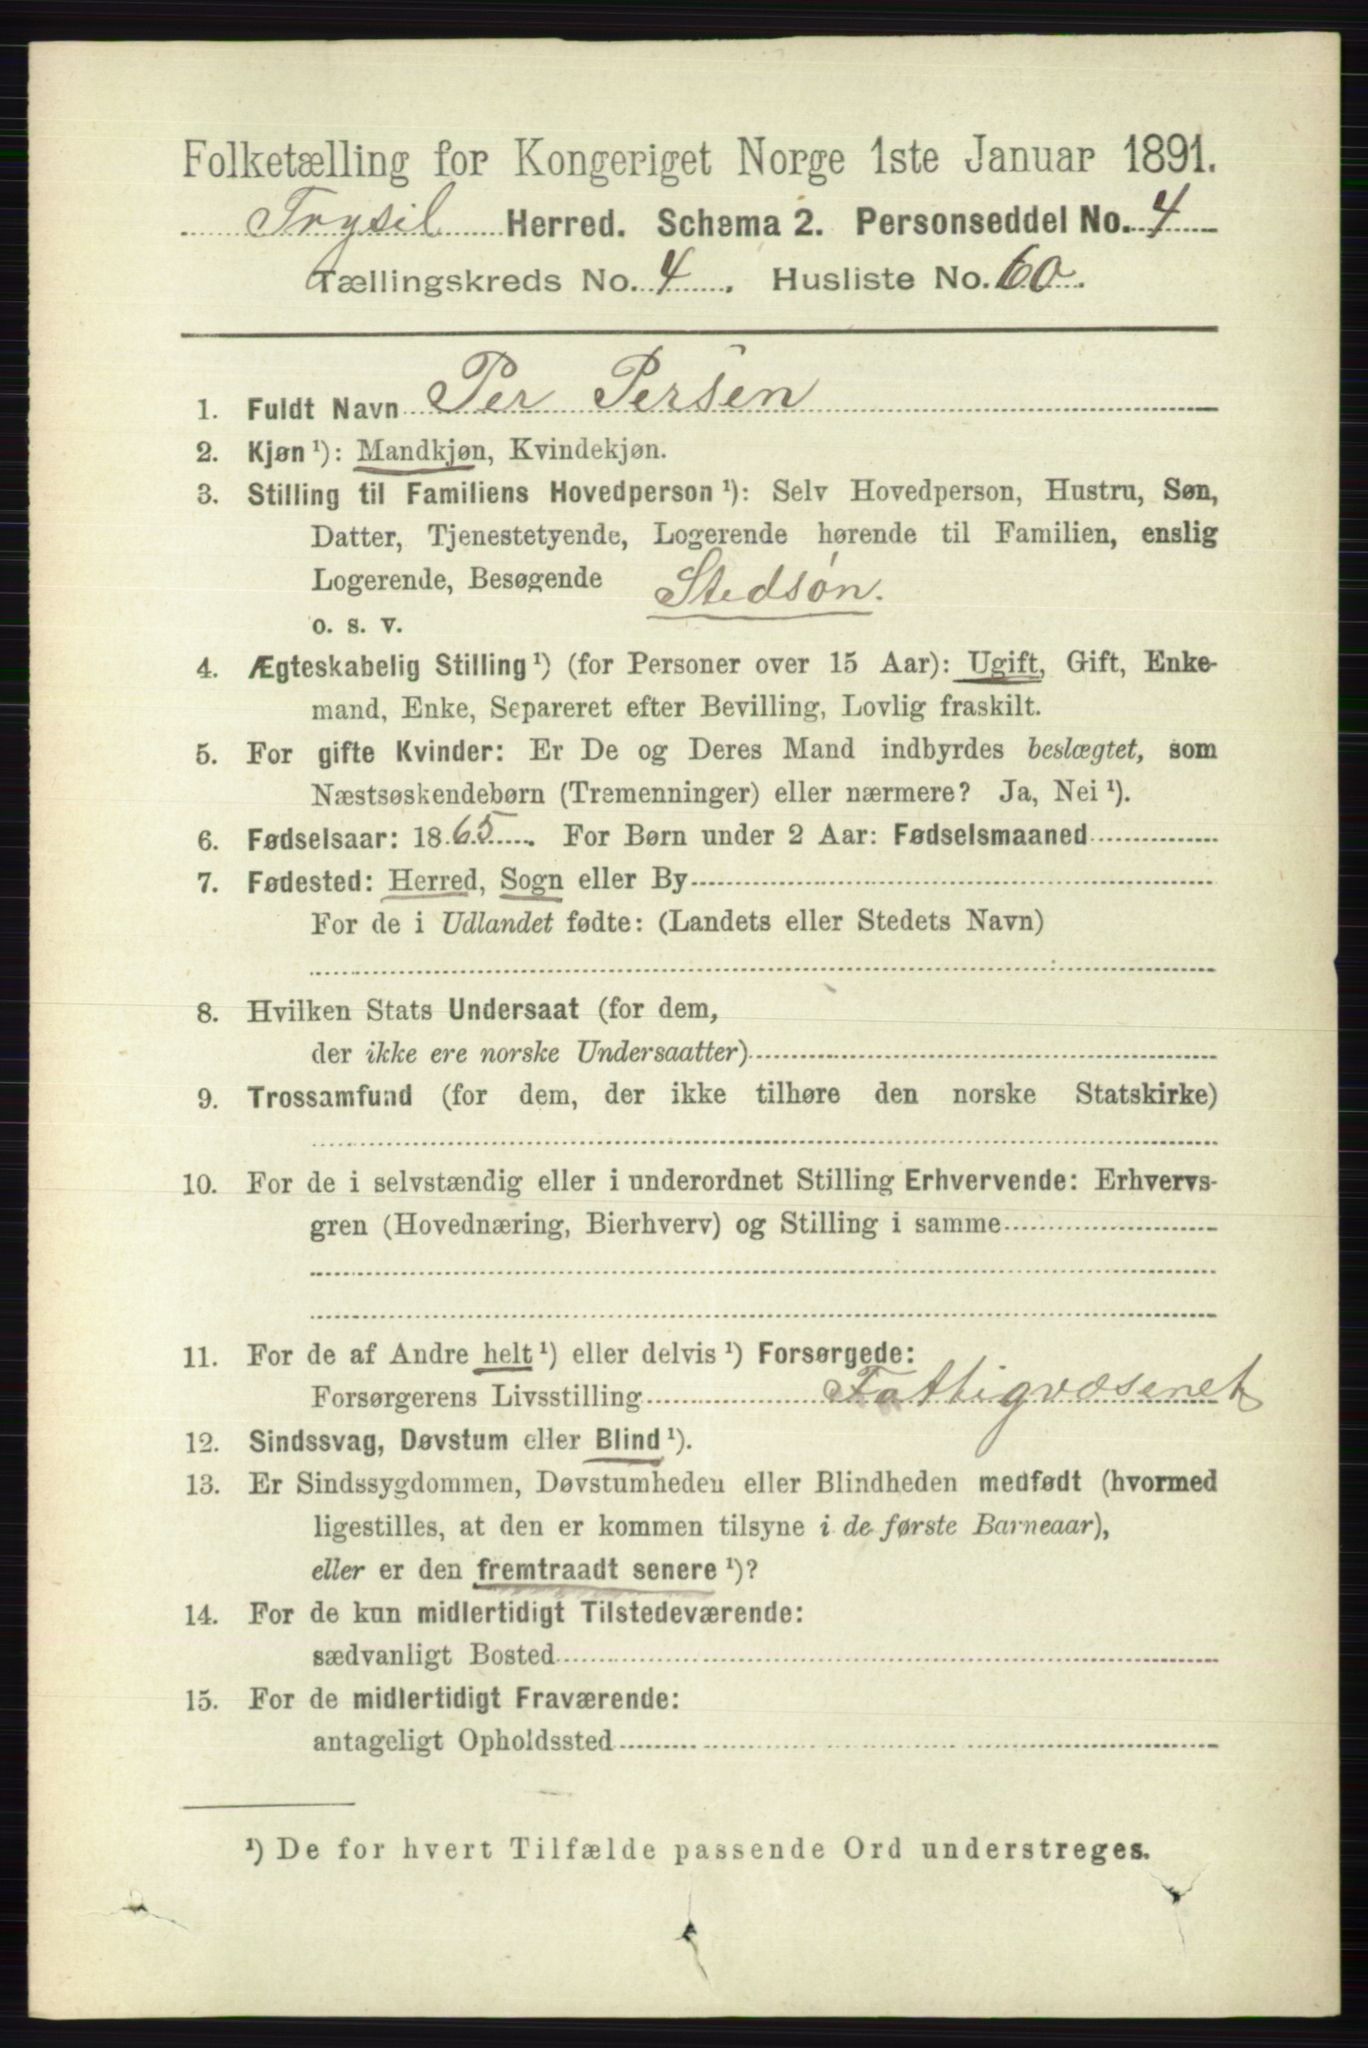 Folketælling for Kongeriget Norge 1ste Januar 1891.
Trysil Herred. Schema 2. Personseddel No. 4
Tællingskreds No. 4. Husliste No. 60.
1. Fuldt Navn Per Persen
2. Kjøn ¹): Mandkjøn, Kvindekjøn.
3. Stilling til Familiens Hovedperson ¹): Selv Hovedperson, Hustru, Søn,
Datter, Tjenestetyende, Logerende hørende til Familien, enslig
Logerende, Besøgende Stedsøn.
o. s. v.
4. Ægteskabelig Stilling ¹) (for Personer over 15 Aar): Ugift, Gift, Enke-
mand, Enke, Separeret efter Bevilling, Lovlig fraskilt.
5. For gifte Kvinder: Er De og Deres Mand indbyrdes beslægtet, som
Næstsøskendebørn (Tremenninger) eller nærmere? Ja, Nei ¹).
6. Fødselsaar: 1865. For Børn under 2 Aar: Fødselsmaaned
7. Fødested: Herred, Sogn eller By
For de i Udlandet fødte: (Landets eller Stedets Navn)
8. Hvilken Stats Undersaat (for dem,
der ikke ere norske Undersaatter)
9. Trossamfund (for dem, der ikke tilhøre den norske Statskirke)
10. For de i selvstændig eller i underordnet Stilling Erhvervende: Erhvervs-
gren (Hovednæring, Bierhverv) og Stilling i samme
11. For de af Andre helt ¹) eller delvis ¹) Forsørgede:
Forsørgerens Livsstilling Fattigvæsenet
12. Sindssvag, Døvstum eller Blind ¹).
13. Er Sindssygdommen, Døvstumheden eller Blindheden medfødt (hvormed
ligestilles, at den er kommen tilsyne i de første Barneaar),
eller er den fremtraadt senere ¹)?
14. For de kun midlertidigt Tilstedeværende:
sædvanligt Bosted
15. For de midlertidigt Fraværende:
antageligt Opholdssted
¹) De for hvert Tilfælde passende Ord understreges.